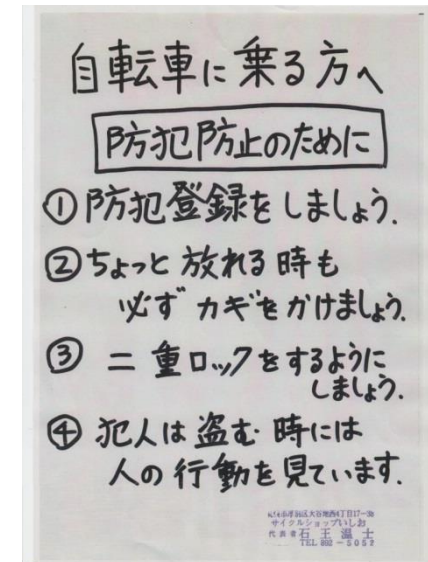 自転車に乗る方へ
防犯防止のために
①防犯登録をしましょう.
②ちょっと放れる時も
必ずカギをかけましょう.
③二重ロックをするように
しましょう.
④犯人は盗む時には
人の行動を見ています.
サイクルショップいしお
代表者 石王温士